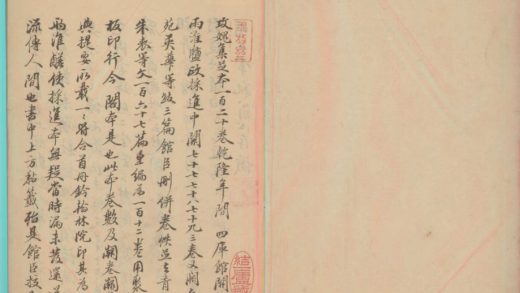 攻媿集足本一百二十卷乾隆年間 四庫館開
兩淮鹽政採進中闕七十七七十八七十九三卷又闕
苑英華等跋三篇館臣刪併卷帙並去青
朱表等文一百六十七篇重編為一百十二卷用聚
板印行今 閣本是也此本卷數及闕卷闕
與提要所載一一符合首冊鈐翰林院印其為
兩淮鹺使採進本無疑當時漏未發還遂
流傳人間也書中上方黏籤殆是館臣校